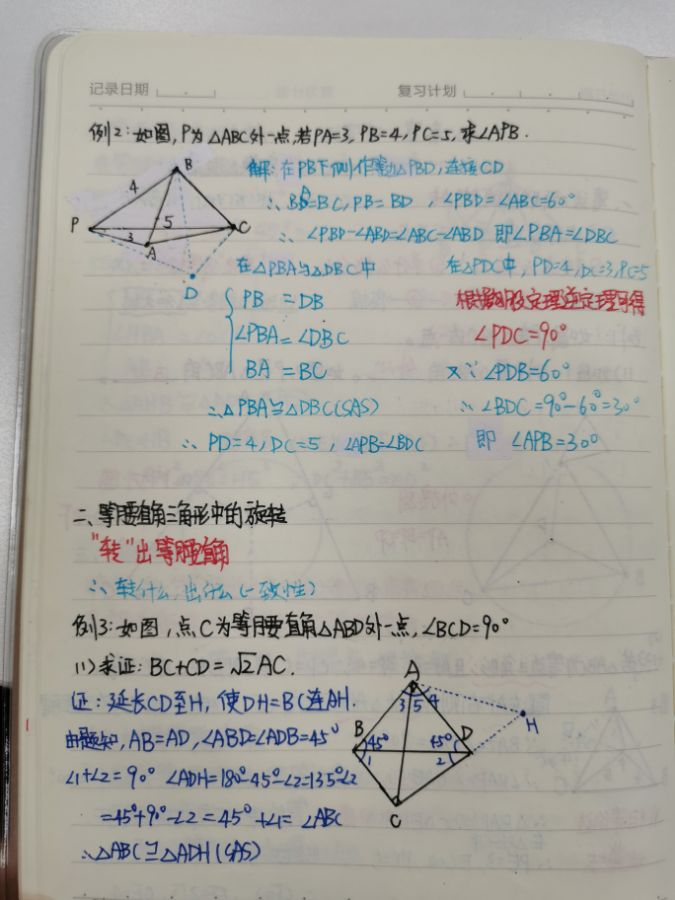 记录日期
复习计划
例2:如图,P为△ABC外一点,若PA=3,PB=4,PC=5,求∠APB.
解:在PB下侧作等边△PBD,连接CD
∴BA=BC,PB=BD,∠PBD=∠ABC=60°
∴∠PBD-∠ABD=∠ABC-∠ABD 即∠PBA=∠DBC
B
4
5
P
3
A
C
D
在△PBA与△DBC中
PB = DB
∠PBA=∠DBC
BA = BC
∴△PBA≌△DBC(SAS)
∴PD=4,DC=5,∠APB=∠BDC
在△PDC中,PD=4,DC=3,PC=5
根据勾股定理逆定理可得
∠PDC=90°
又∵∠PDB=60°
∴∠BDC=90°-60°=30°
即 ∠APB=30°
二、等腰直角三角形中的旋转
"转"出等腰直角
∴转什么,出什么(一致性)
例3:如图,点C为等腰直角△ABD外一点,∠BCD=90°
(1)求证:BC+CD=√2AC.
证:延长CD至H,使DH=BC连AH.
由题知,AB=AD,∠ABD=∠ADB=45°
∠1+∠2=90° ∠ADH=180°-45°-∠2=135°-∠2
=45°+90°-∠2=45°+∠1=∠ABC
∴△ABC≌△ADH(SAS)
A
3
5
4
H
B
45°
45°
D
1
2
C